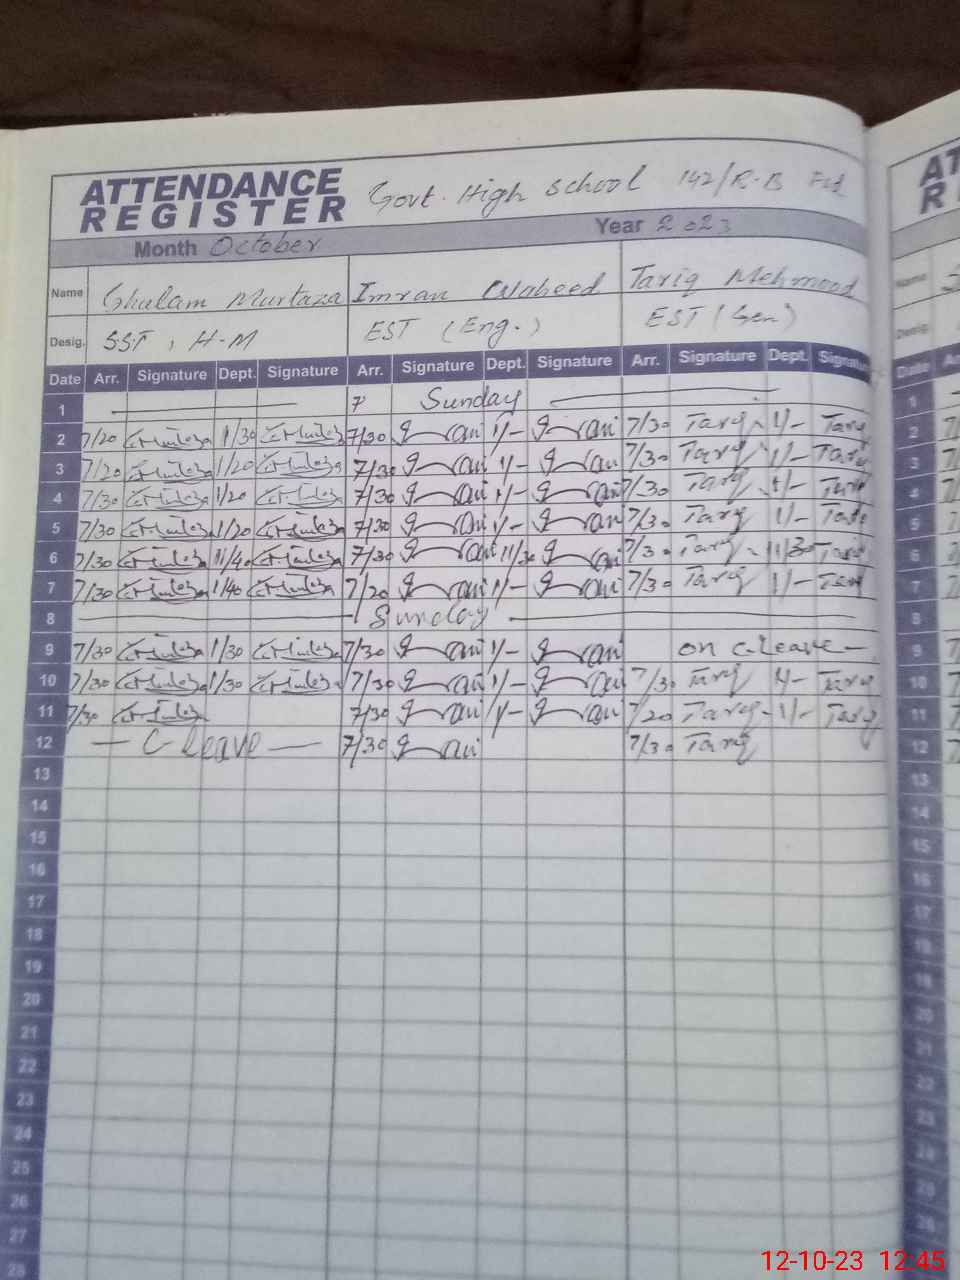 ATTENDANCE REGISTER Govt. High School 142/R-B Fsd
Month October Year 2023
Name Ghulam Murtaza Imran Waheed Tariq Mehmood
Desig. SST, H-M EST (Eng.) EST (Gen)
Date Arr. Signature Dept. Signature Arr. Signature Dept. Signature Arr. Signature Dept. Signature
1 Sunday
2 7/20 1/30 7/30 1/- 7/30 Tariq 1/- Tariq
3 7/20 1/20 7/30 1/- 7/30 Tariq 1/- Tariq
4 7/30 1/20 7/30 1/- 7/30 Tariq 1/- Tariq
5 7/30 1/20 7/30 1/- 7/30 Tariq 1/- Tariq
6 7/30 11/40 7/30 11/30 7/30 Tariq 11/30 Tariq
7 7/30 1/40 7/20 1/- 7/30 Tariq 1/- Tariq
8 Sunday
9 7/30 1/30 7/30 1/- on C-leave
10 7/30 1/30 7/30 1/- 7/30 Tariq 1/- Tariq
11 7/30 7/30 1/- 7/20 Tariq 1/- Tariq
12 C leave 7/30 7/30 Tariq
13
14
15
16
17
18
19
20
21
22
23
24
25
26
27
28
12-10-23 12:45